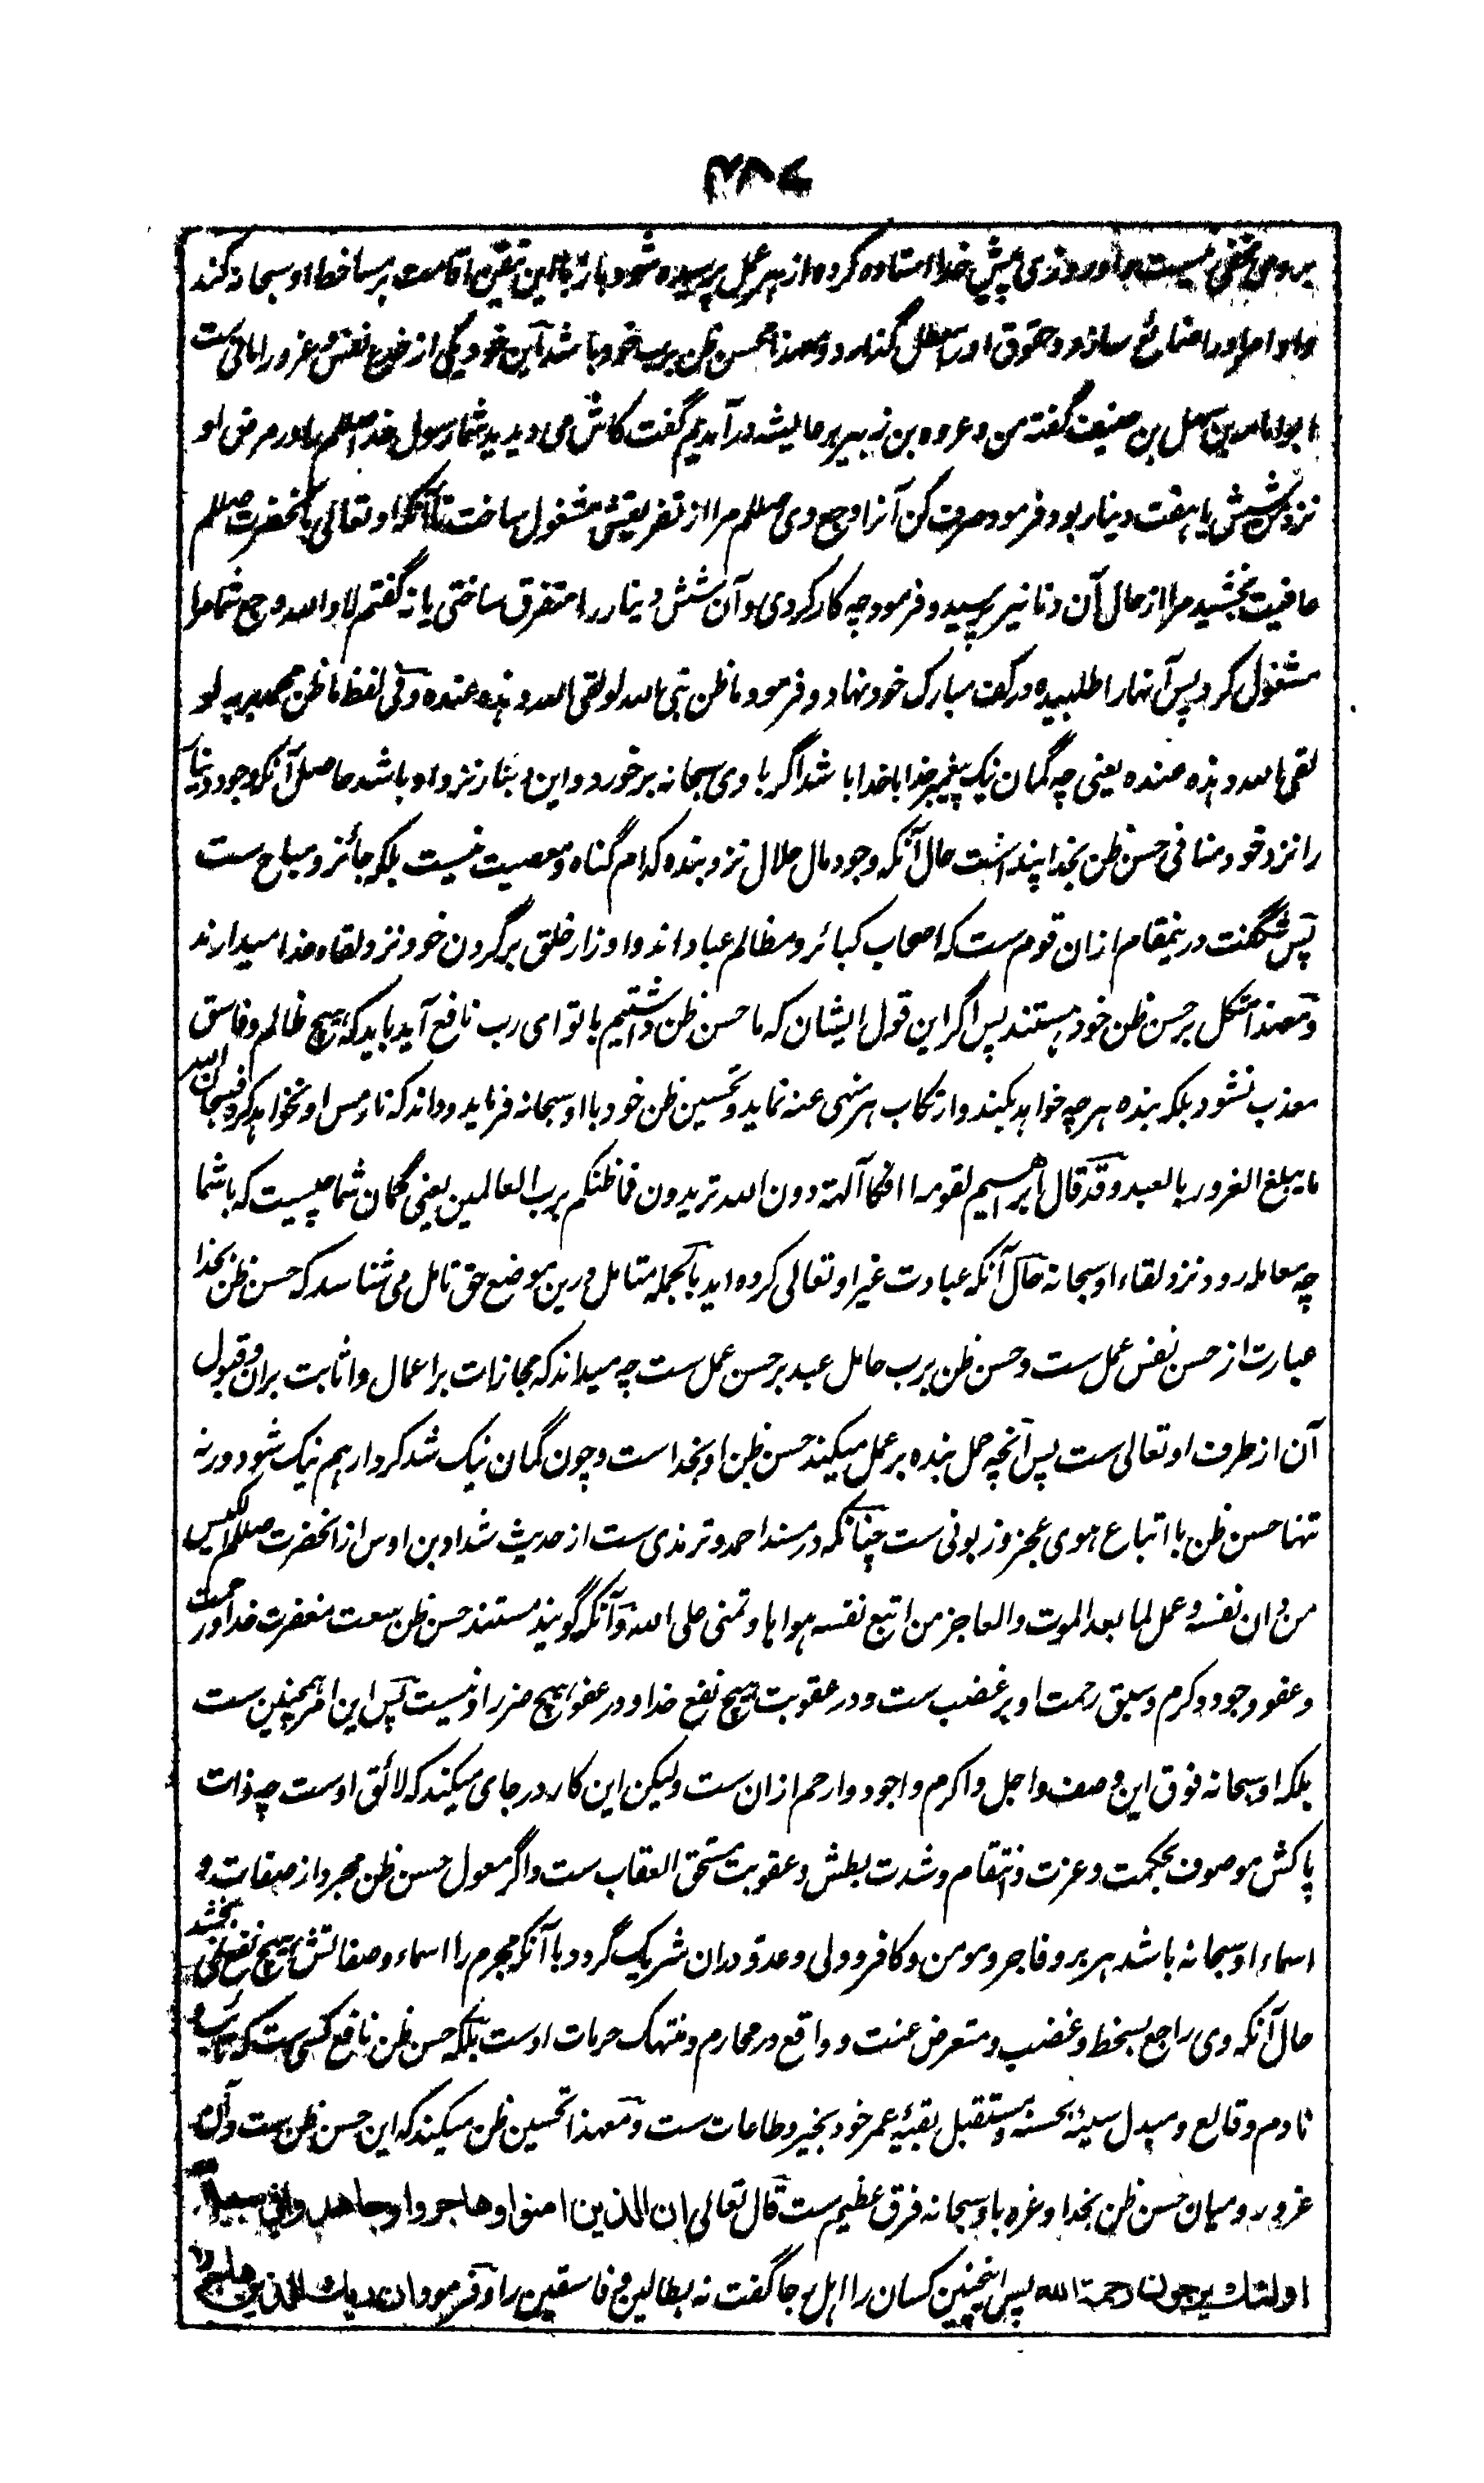 ۳۸۷
بروی مخفی نیست و او روزی پیش خدا استاده کرده از هر عمل پرسیده شود باز با این تیقن اقامت بر مساخط او سبحانه کند
و اوامر او را ضائع سازد و حقوق او را معطل گذارد و معهذا محسن ظن برب خود باشد این خود یکی از خدع نفس و غرور امانی ست
ابو امامه بن سهل بن حنیف گفته من و عروه بن زبیر بر عایشه در آمدیم گفت کاش می دیدید شما رسول خدا صللم را در مرض او
نزد من شش یا هفت دینار بود فرمود صرف کن آنرا وجع وی صللم مرا از تفریقش مشغول ساخت تا آنکه او تعالی بآنحضرت صللم
عافیت بخشید مرا از حال آن دنانیر پرسید و فرمود چه کار کردی و آن شش دینار را متفرق ساختی یا نه گفتم لا والله وجع شما مرا
مشغول کرد پس آنها را طلبیده در کف مبارک خود نهاد و فرمود ما ظن نبی الله لو لقی الله و هذه عنده و فی لفظ ما ظن محمد بربه لو
لقی الله و هذه عنده یعنی چه گمان نیک پیغمبر خدا باخدا باشد اگر با وی سبحانه برخورد و این دینار نزد او باشد حاصل آنکه وجود دینار
را نزد خود منافی حسن ظن بخدا پنداشت حال آنکه وجود مال حلال نزد بنده کدام گناه و معصیت نیست بلکه جائز و مباح ست
پس شگفت درینمقام ازان قوم ست که اصحاب کبائر و مظالم عباد اند و اوزار خلق برگردن خود نزد لقاء خدا میدارند
و معهذا متکل بر حسن ظن خود هستند پس اگر این قول ایشان که ما حسن ظن داشتیم با تو ای رب نافع آید باید که هیچ ظالم و فاسق
معذب نشود بلکه بنده هر چه خواهد بکند و ارتکاب هر منهی عنه نماید و تحسین ظن خود با او سبحانه فرماید و داند که نار مس او نخواهد کرد فسبحان الله
ما یبلغ الغرور بالعبد و قد قال ابراهیم لقومه ائفکا آلهة دون الله تریدون فما ظنکم برب العالمین یعنی گمان شما چیست که باشما
چه معامله رود نزد لقاء او سبحانه حال آنکه عبادت غیر او تعالی کرده اید بالجمله متامل درین موضع حق تامل می شناسد که حسن ظن بخدا
عبارت از حسن نفس عمل ست و حسن ظن برب حامل عبد بر حسن عمل ست چه میداند که مجازات بر اعمال و اثابت بران و قبول
آن از طرف او تعالی ست پس آنچه حمل بنده بر عمل میکند حسن ظن او بخداست و چون گمان نیک شد کردار هم نیک شود ورنه
تنها حسن ظن با اتباع هوی عجز و زبونی ست چنانکه در مسند احمد و ترمذی ست از حدیث شداد بن اوس از آنحضرت صللم الکیس
من دان نفسه و عمل لما بعد الموت والعاجز من اتبع نفسه هواها و تمنی علی الله و آنکه گویند مستند حسن ظن سعت مغفرت خدا و رحمت
و عفو و جود و کرم و سبق رحمت او بر غضب ست و در عقوبت هیچ نفع خدا و در عفو هیچ ضرر او نیست پس این امر همچنین ست
بلکه او سبحانه فوق این وصف و اجل و اکرم و اجود و ارحم ازان ست ولیکن این کار در جای میکند که لائق اوست چه ذات
پاکش موصوف بحکمت و عزت و انتقام و شدت بطش و عقوبت مستحق العقاب ست و اگر معول حسن ظن مجرد از صفات و
اسماء او سبحانه باشد هر بر و فاجر و مومن و کافر و ولی و عدو دران شریک گردد با آنکه مجرم را اسماء و صفاتش هیچ نفع نمی بخشد
حال آنکه وی راجع بسخط و غضب و متعرض لعنت و واقع در محارم و منتهک حرمات اوست بلکه حسن ظن نافع کسی ست که تائب و
نادم و قالع و مبدل سیئه بحسنه و مستقبل بقیه عمر خود بخیر و طاعات ست و معهذا تحسین ظن میکند که این حسن ظن ست و آن
غرور و میان حسن ظن بخدا و غره باو سبحانه فرق عظیم ست قال تعالی ان الذین امنوا وهاجروا وجاهدوا فی سبیل
اولئک یرجون رحمة الله پس اینچنین کسان را اهل رجا گفت نه بطالین و فاسقین را و فرمود ان ربک للذین هاجروا